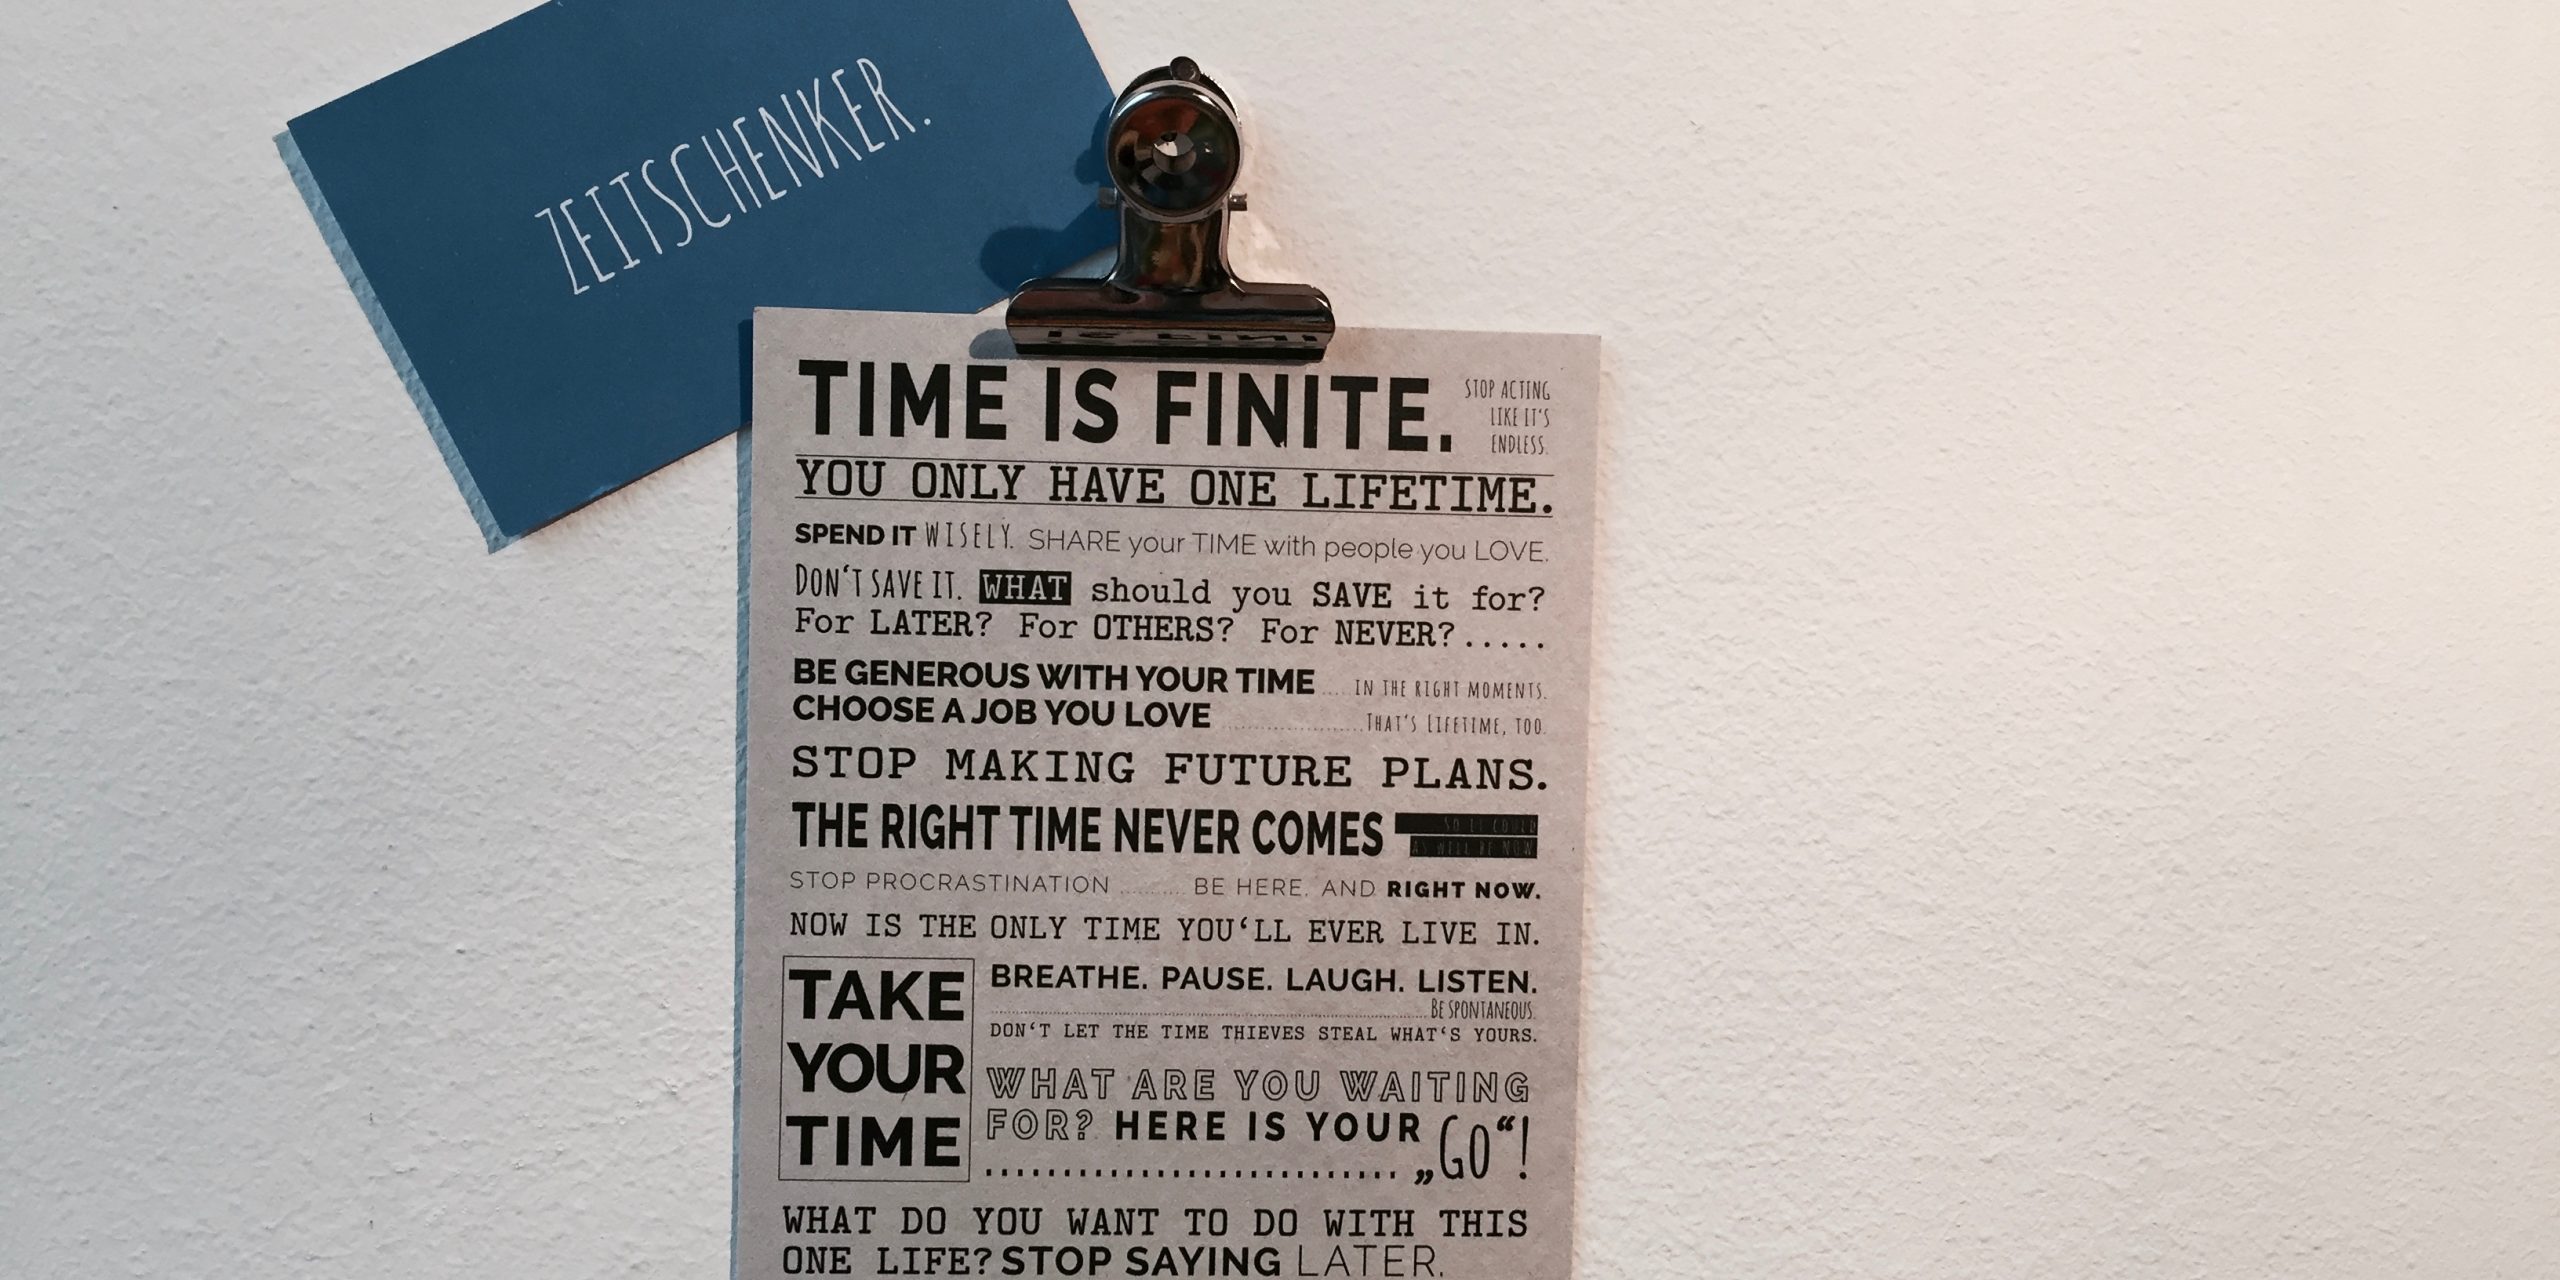 ZEITSCHENKER.
TIME IS FINITE.
STOP ACTING
LIKE IT'S
ENDLESS.
YOU ONLY HAVE ONE LIFETIME.
SPEND IT WISELY. SHARE your TIME with people you LOVE.
DON'T SAVE IT. WHAT should you SAVE it for?
For LATER? For OTHERS? For NEVER?.....
BE GENEROUS WITH YOUR TIME ..... IN THE RIGHT MOMENTS.
CHOOSE A JOB YOU LOVE ..................... THAT'S LIFETIME, TOO.
STOP MAKING FUTURE PLANS.
THE RIGHT TIME NEVER COMES
SO IT COULD
AS WELL BE NOW
STOP PROCRASTINATION .......... BE HERE. AND RIGHT NOW.
NOW IS THE ONLY TIME YOU‘LL EVER LIVE IN.
TAKE
YOUR
TIME
BREATHE. PAUSE. LAUGH. LISTEN.
BE SPONTANEOUS.
DON‘T LET THE TIME THIEVES STEAL WHAT‘S YOURS.
WHAT ARE YOU WAITING
FOR? HERE IS YOUR
............................. „GO“!
WHAT DO YOU WANT TO DO WITH THIS
ONE LIFE? STOP SAYING LATER.